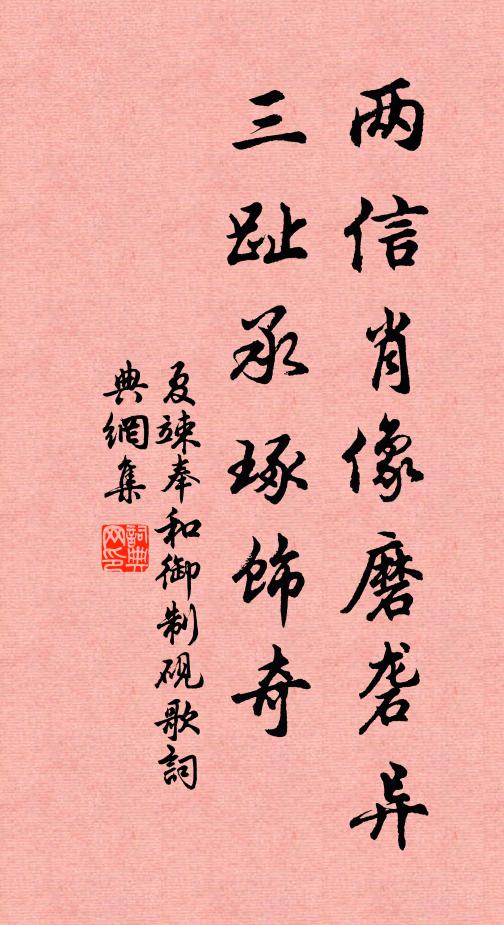 两信肖像磨砻异
三趾承琢饰奇
夏竦奉和御制砚歌詞
典網集
詞典网印